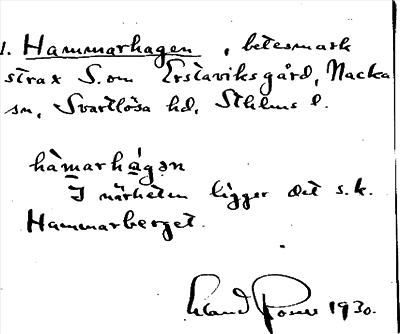 1. Hammarhagen, betesmark
strax S. om Erstaviksgård, Nacka
sn, Svartlösa hd, Sthlms l.
hàmarhágən
I närheten ligger det s.k.
Hammarberget.
1930.